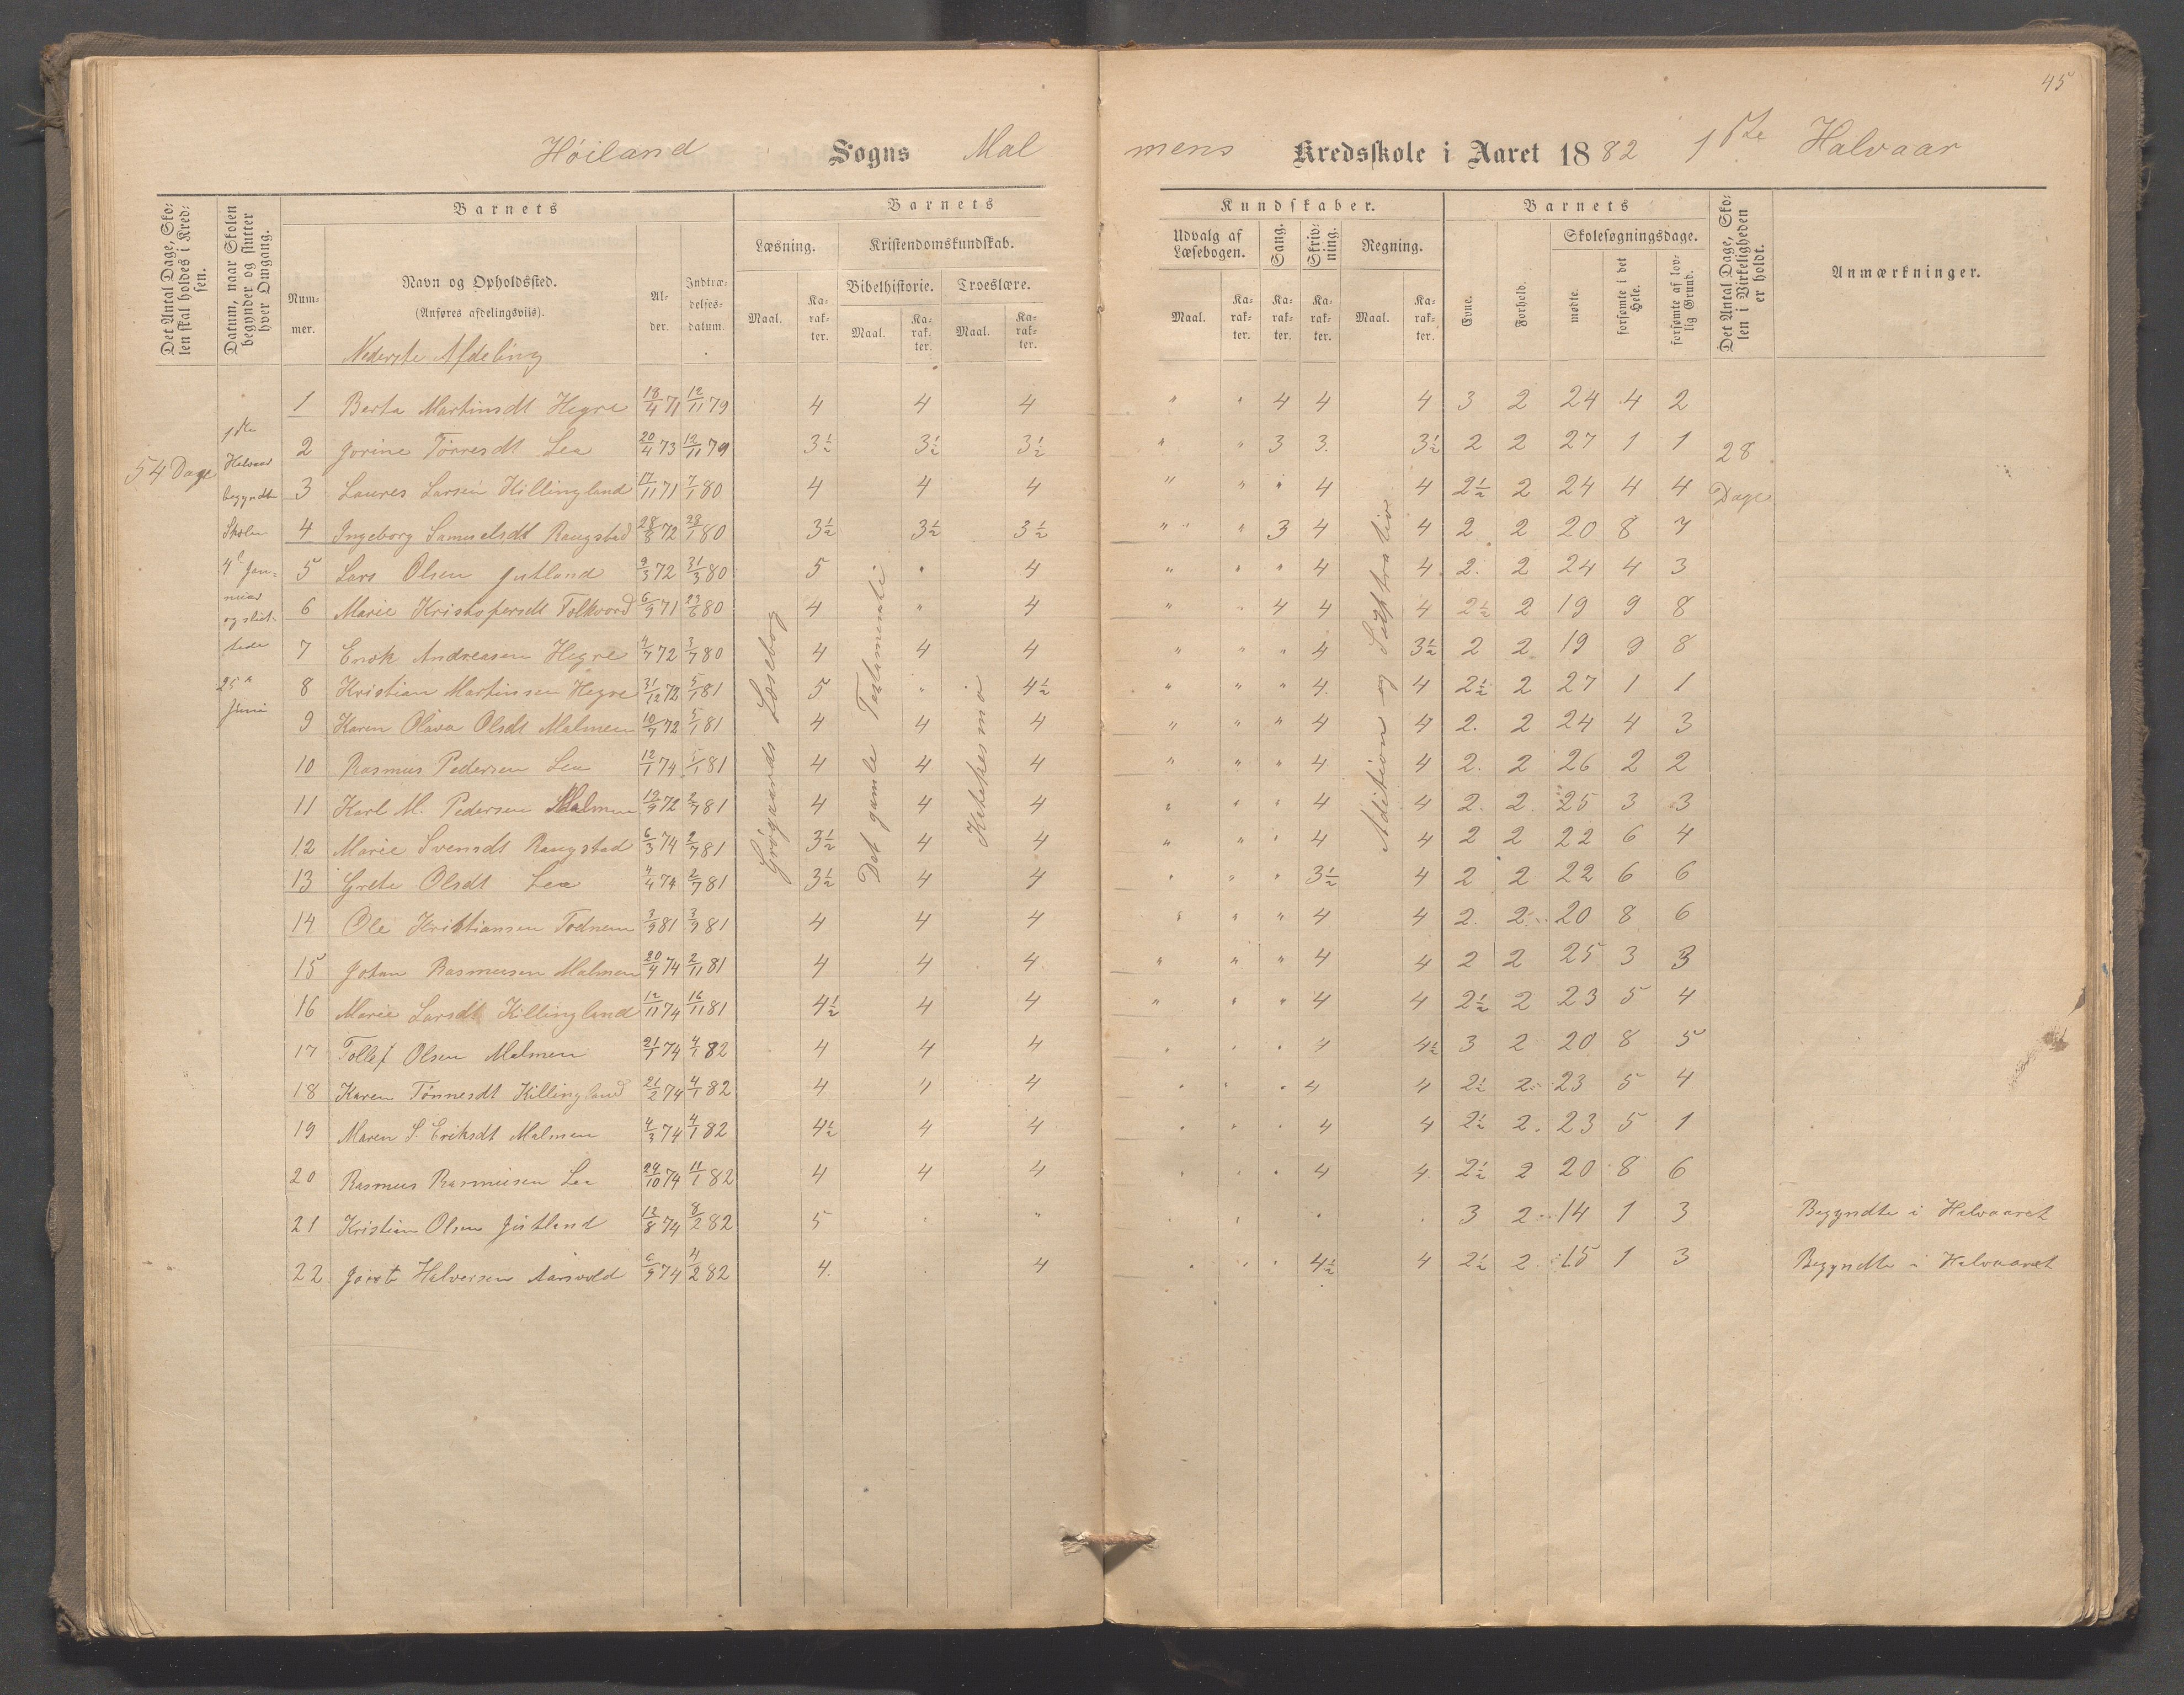 45
Höiland Sogns Mal mens Kredsskole i Aaret 1882 1ste Halvaar
Det Antal Dage, Skolen skal holdes i Kredsen.
Datum, naar Skolen begynder og slutter hver Omgang.
Barnets
Nummer.
Navn og Opholdssted.
(Anføres afdelingsviis).
Nederste Afdeling
Alder.
Indtrædelses-datum.
Barnets Kundskaber.
Læsning.
Maal.
Karakter.
Kristendomskundskab.
Bibelhistorie.
Maal.
Karakter.
Troeslære.
Maal.
Karakter.
Udvalg af Læsebogen.
Maal.
Karakter.
Sang.
Karakter.
Skrivning.
Karakter.
Regning.
Maal.
Karakter.
Barnets
Evne.
Forhold.
Skolesøgningsdage.
mødte.
forsømte i det Hele.
forsømte af lovlig Grund.
Det Antal Dage, Skolen i Virkeligheden er holdt.
Anmærkninger.
54 Dage
1ste
Halvaar
begyndte
Skolen
4de Jan-
nuar
og slut-
tede
25de
Juni
Grøgaards Læsebog
Det gamle Testamente
Katekesmo
Adition og Subtration
28
Dage
1 Berta Martinsdt Hegre 18/4 71 12/11 79 4 4 4 " " 4 4 4 3 2 24 4 2
2 Jorine Tørresdt Lea 20/4 73 12/11 79 3½ 3½ 3½ " " 3 3 3½ 2 2 27 1 1
3 Laures Larsen Killingland 17/11 71 7/1 80 4 4 4 " " " 4 4 2½ 2 24 4 4
4 Ingeborg Samuelsdt Raugstad 28/8 72 28/1 80 3½ 3½ 3½ " " 3 4 4 2 2 20 8 7
5 Lars Olsen Jutland 9/3 72 31/3 80 5 " 4 " " " 4 4 2 2 24 4 3
6 Marie Kristofersdt Folkvord 6/9 71 23/6 80 4 " 4 " " 4 4 4 2½ 2 19 9 8
7 Enok Andreasen Hegre 4/7 72 3/7 80 4 4 4 " " " 4 3½ 2 2 19 9 8
8 Kristian Martinsen Hegre 31/12 72 5/1 81 5 " 4½ " " " 4 4 2½ 2 27 1 1
9 Karen Olava Olsdt Malmen 10/7 72 5/1 81 4 4 4 " " " 4 4 2 2 24 4 3
10 Rasmus Pedersen Lea 12/1 74 5/1 81 4 4 4 " " " 4 4 2 2 26 2 2
11 Karl M. Pedersen Malmen 19/9 72 2/7 81 4 4 4 " " " 4 4 2 2 25 3 3
12 Marie Svensdt Raugstad 6/3 74 2/7 81 3½ 4 4 " " " 4 4 2 2 22 6 4
13 Grete Olsdt Lea 4/4 74 2/7 81 3½ 4 4 " " " 3½ 4 2 2 22 6 6
14 Ole Kristiansen Todnem 3/9 81 3/9 81 4 4 4 " " " 4 4 2 2 20 8 6
15 Johan Rasmusen Malmen 20/4 74 2/11 81 4 4 4 " " " 4 4 2 2 25 3 3
16 Marie Larsdt Killingland 12/11 74 16/11 81 4½ 4 4 " " " 4 4 2½ 2 23 5 4
17 Tollef Olsen Malmen 21/1 74 4/1 82 4 4 4 " " " 4 4½ 3 2 20 8 5
18 Karen Tønnesdt Killingland 21/2 74 4/1 82 4 4 4 " " " 4 4 2½ 2 23 5 4
19 Maren S. Eriksdt Malmen 4/3 74 4/1 82 4½ 4 4 " " " 4 4 2½ 2 23 5 1
20 Rasmus Rasmusen Lea 24/10 74 11/1 82 4 4 4 " " " 4 4 2½ 2 20 8 6
21 Kristian Olsen Jutland 13/8 74 8/2 82 5 " " " " " 3 2 14 1 3 Begyndte i Halvaaret
22 Halversen Aarsvold 6/9 74 4/2 82 4 4 " " " 4½ 4 2½ 2 15 1 3 Begyndte i Halvaaret